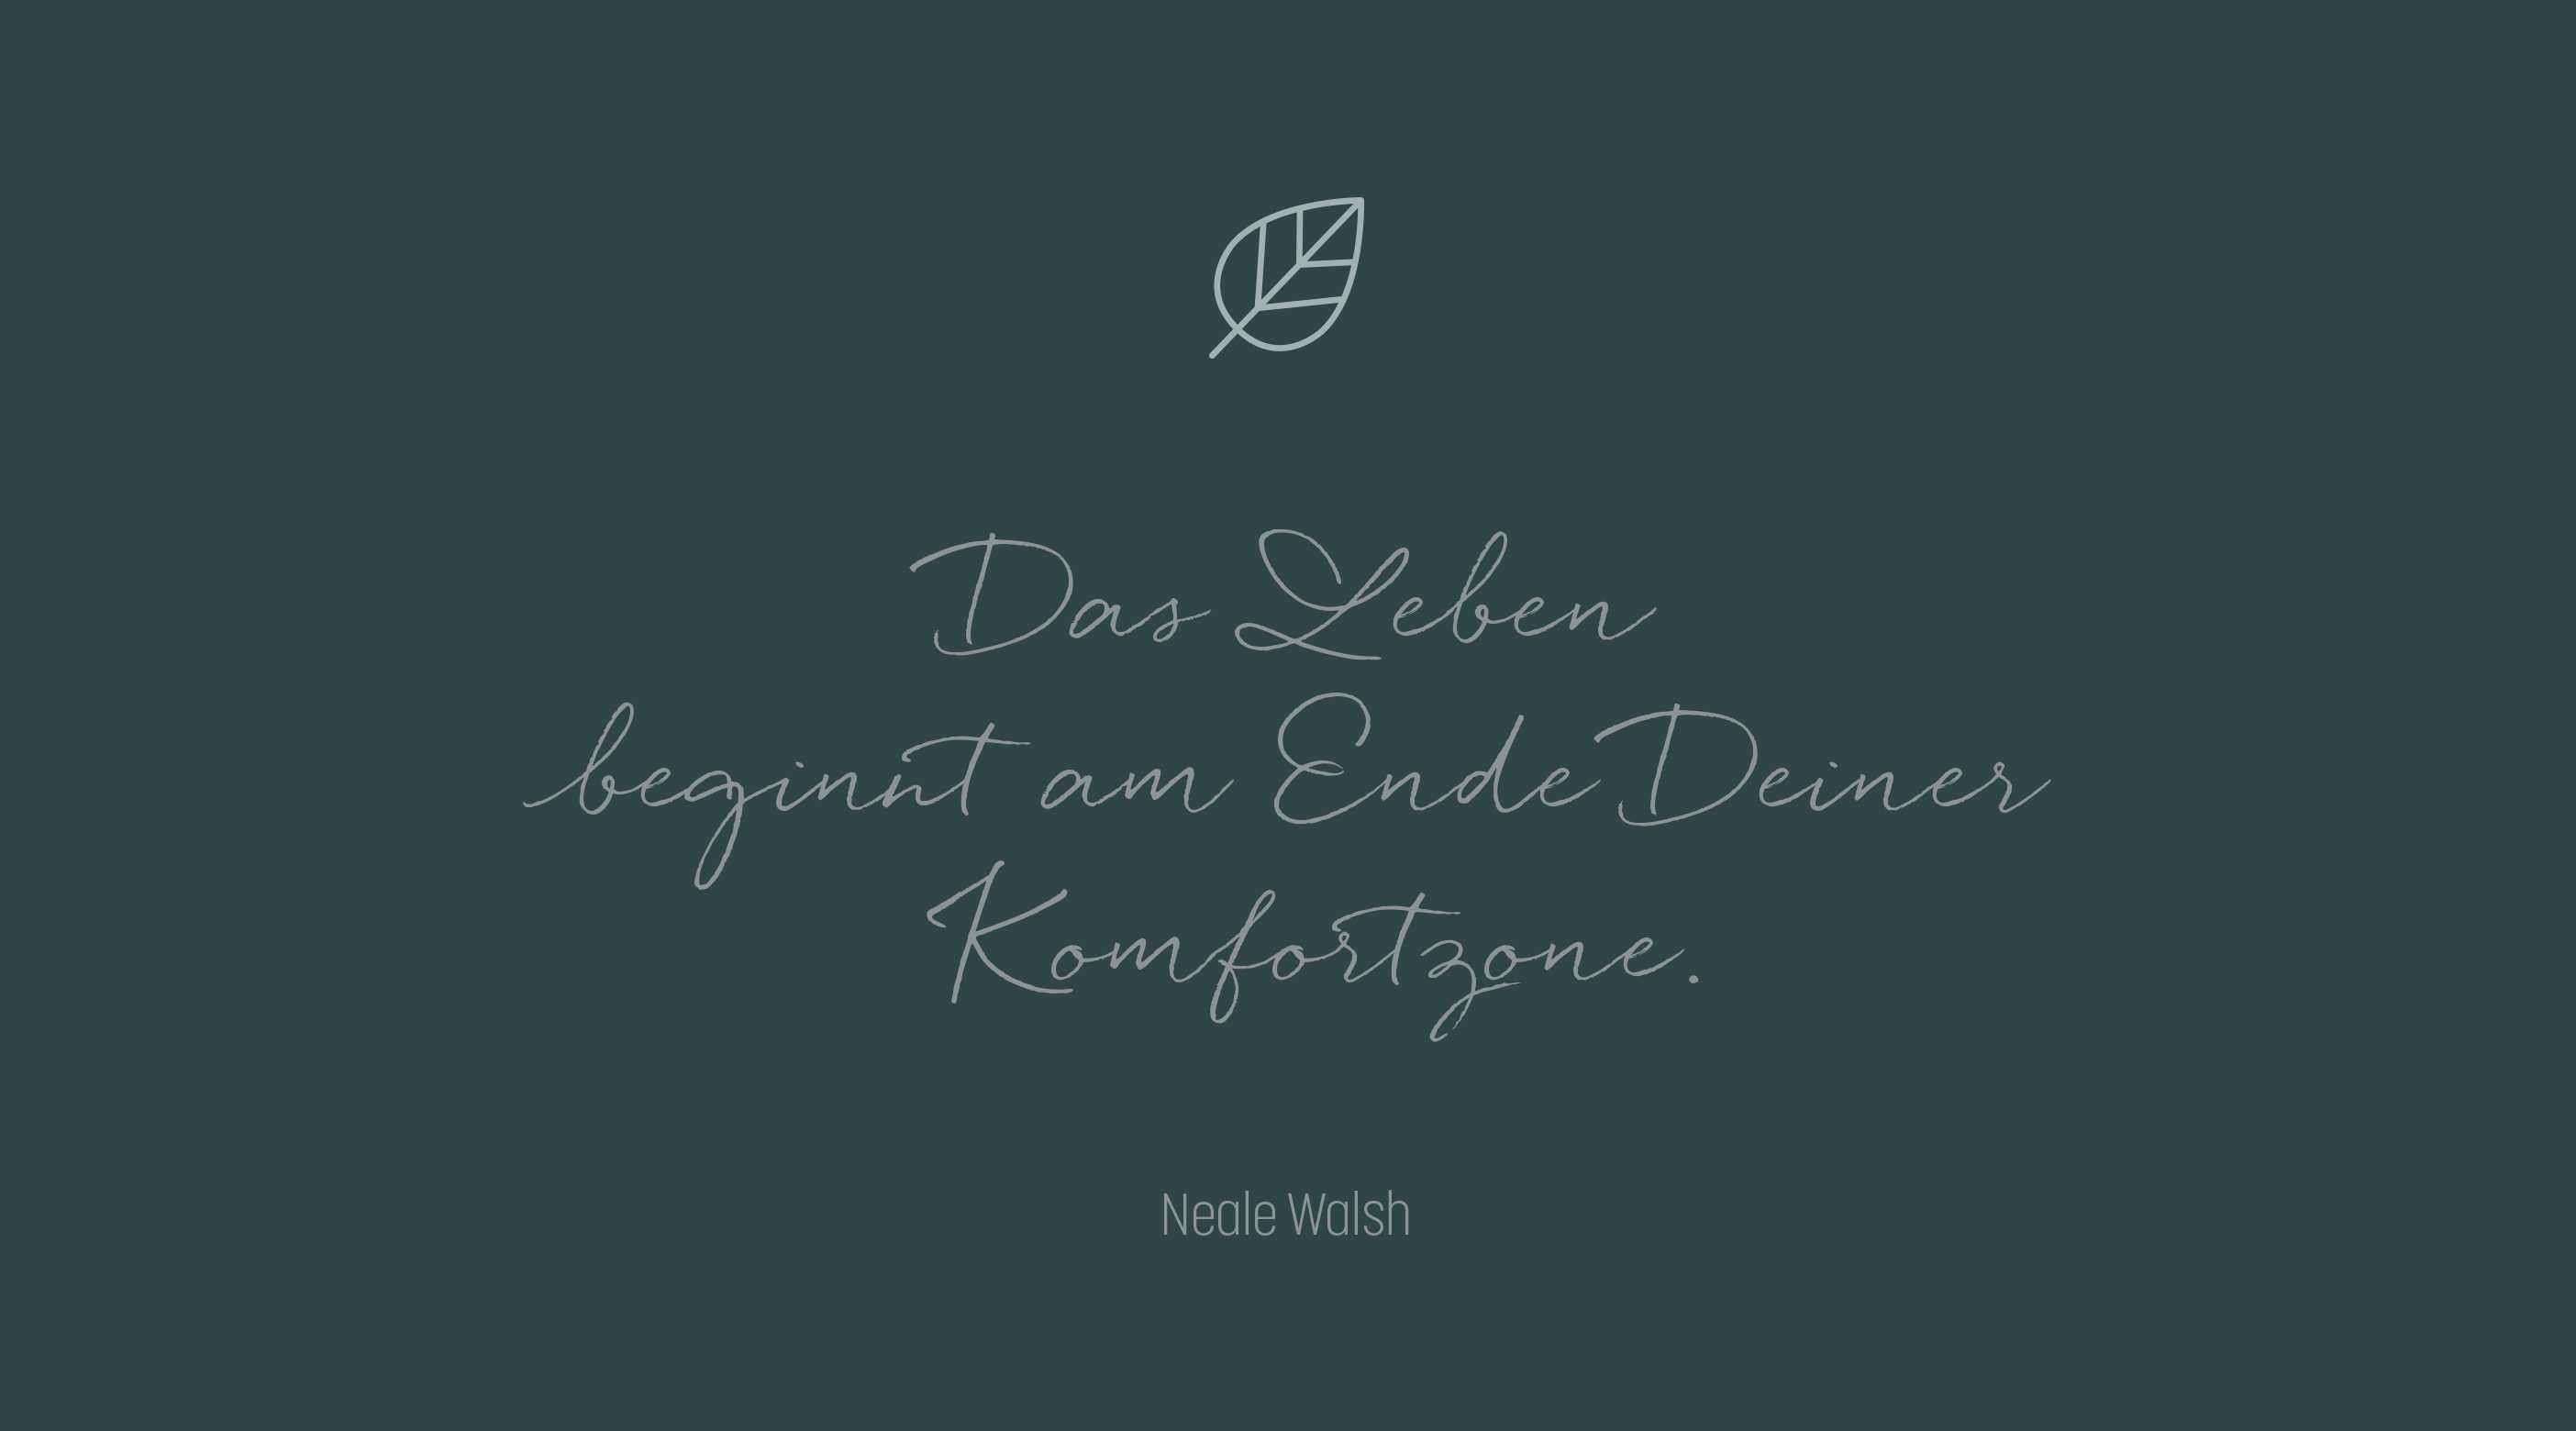 Das Leben
beginnt am Ende Deiner
Komfortzone.
Neale Walsh